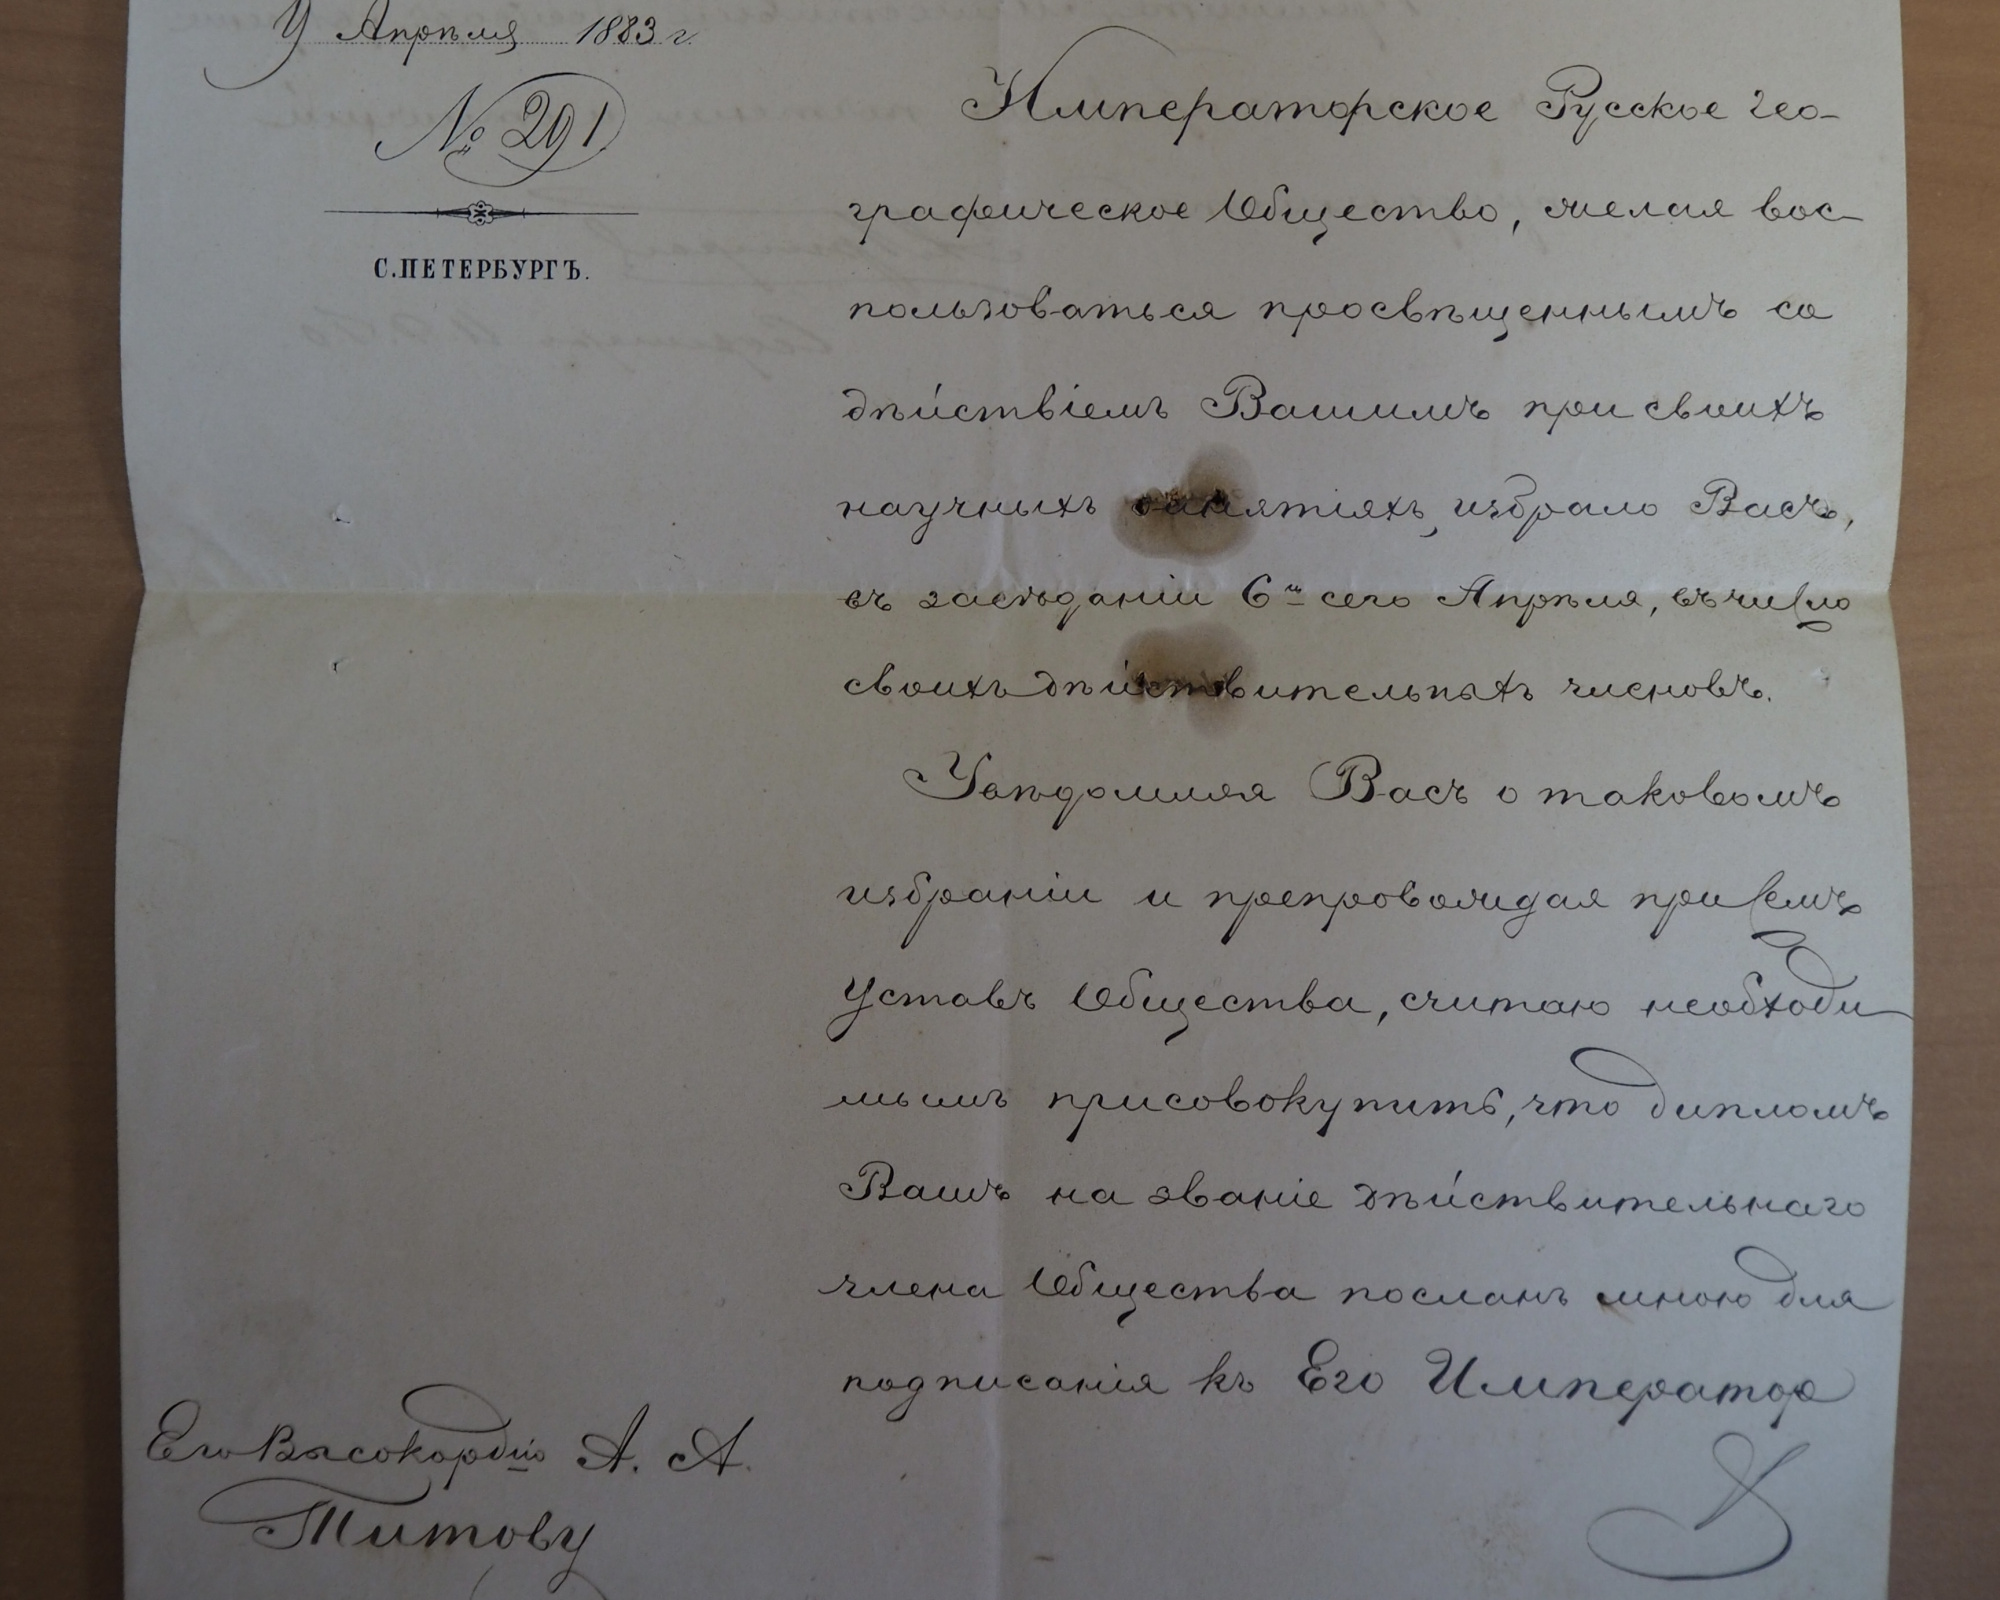 9 Апрѣля 1883 г.
№ 291
С.ПЕТЕРБУРГЪ.
Императорское Русское Гео-
графическое Общество, желая вос-
пользоваться просвѣщеннымъ со
дѣйствіемъ Вашимъ при своихъ
научныхъ занятіяхъ, избрало Васъ,
въ засѣданіи 6го сего Апрѣля, въ число
своихъ дѣйствительныхъ членовъ.
Увѣдомляя Васъ о таковомъ
избраніи и препровождая при семъ
Уставъ Общества, считаю необходи
мымъ присовокупить, что дипломъ
Вашъ на званіе дѣйствительнаго
члена Общества посланъ мною для
подписанія къ Его Император
Его Высокордію А. А.
Титову